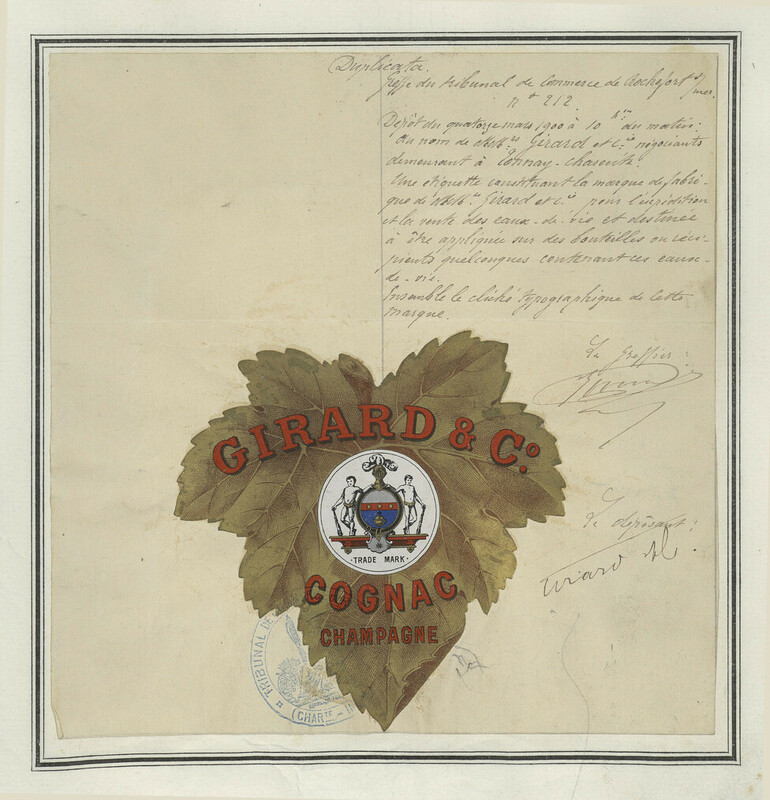 Duplicata.
Greffe du tribunal de Commerce de Rochefort s/ mer.
N° 212
Dépôt du quatorze mars 1900 à 10 h du matin.
Au nom de MM. Girard et Cie négociants
demeurant à Tonnay-Charente.
Une étiquette constituant la marque de fabri-
que de MM. Girard et Cie pour l'expédition
et la vente des eaux-de-vie et destinée
à être appliquée sur des bouteilles ou réci-
pients quelconques contenant ces eaux-
de-vie.
Ensemble le cliché typographique de cette
marque.
Le Greffier:
GIRARD & Co.
·TRADE MARK·
Le déposant:
Girard &c.
COGNAC
CHAMPAGNE
TRIBUNAL DE
(CHARTE - IN